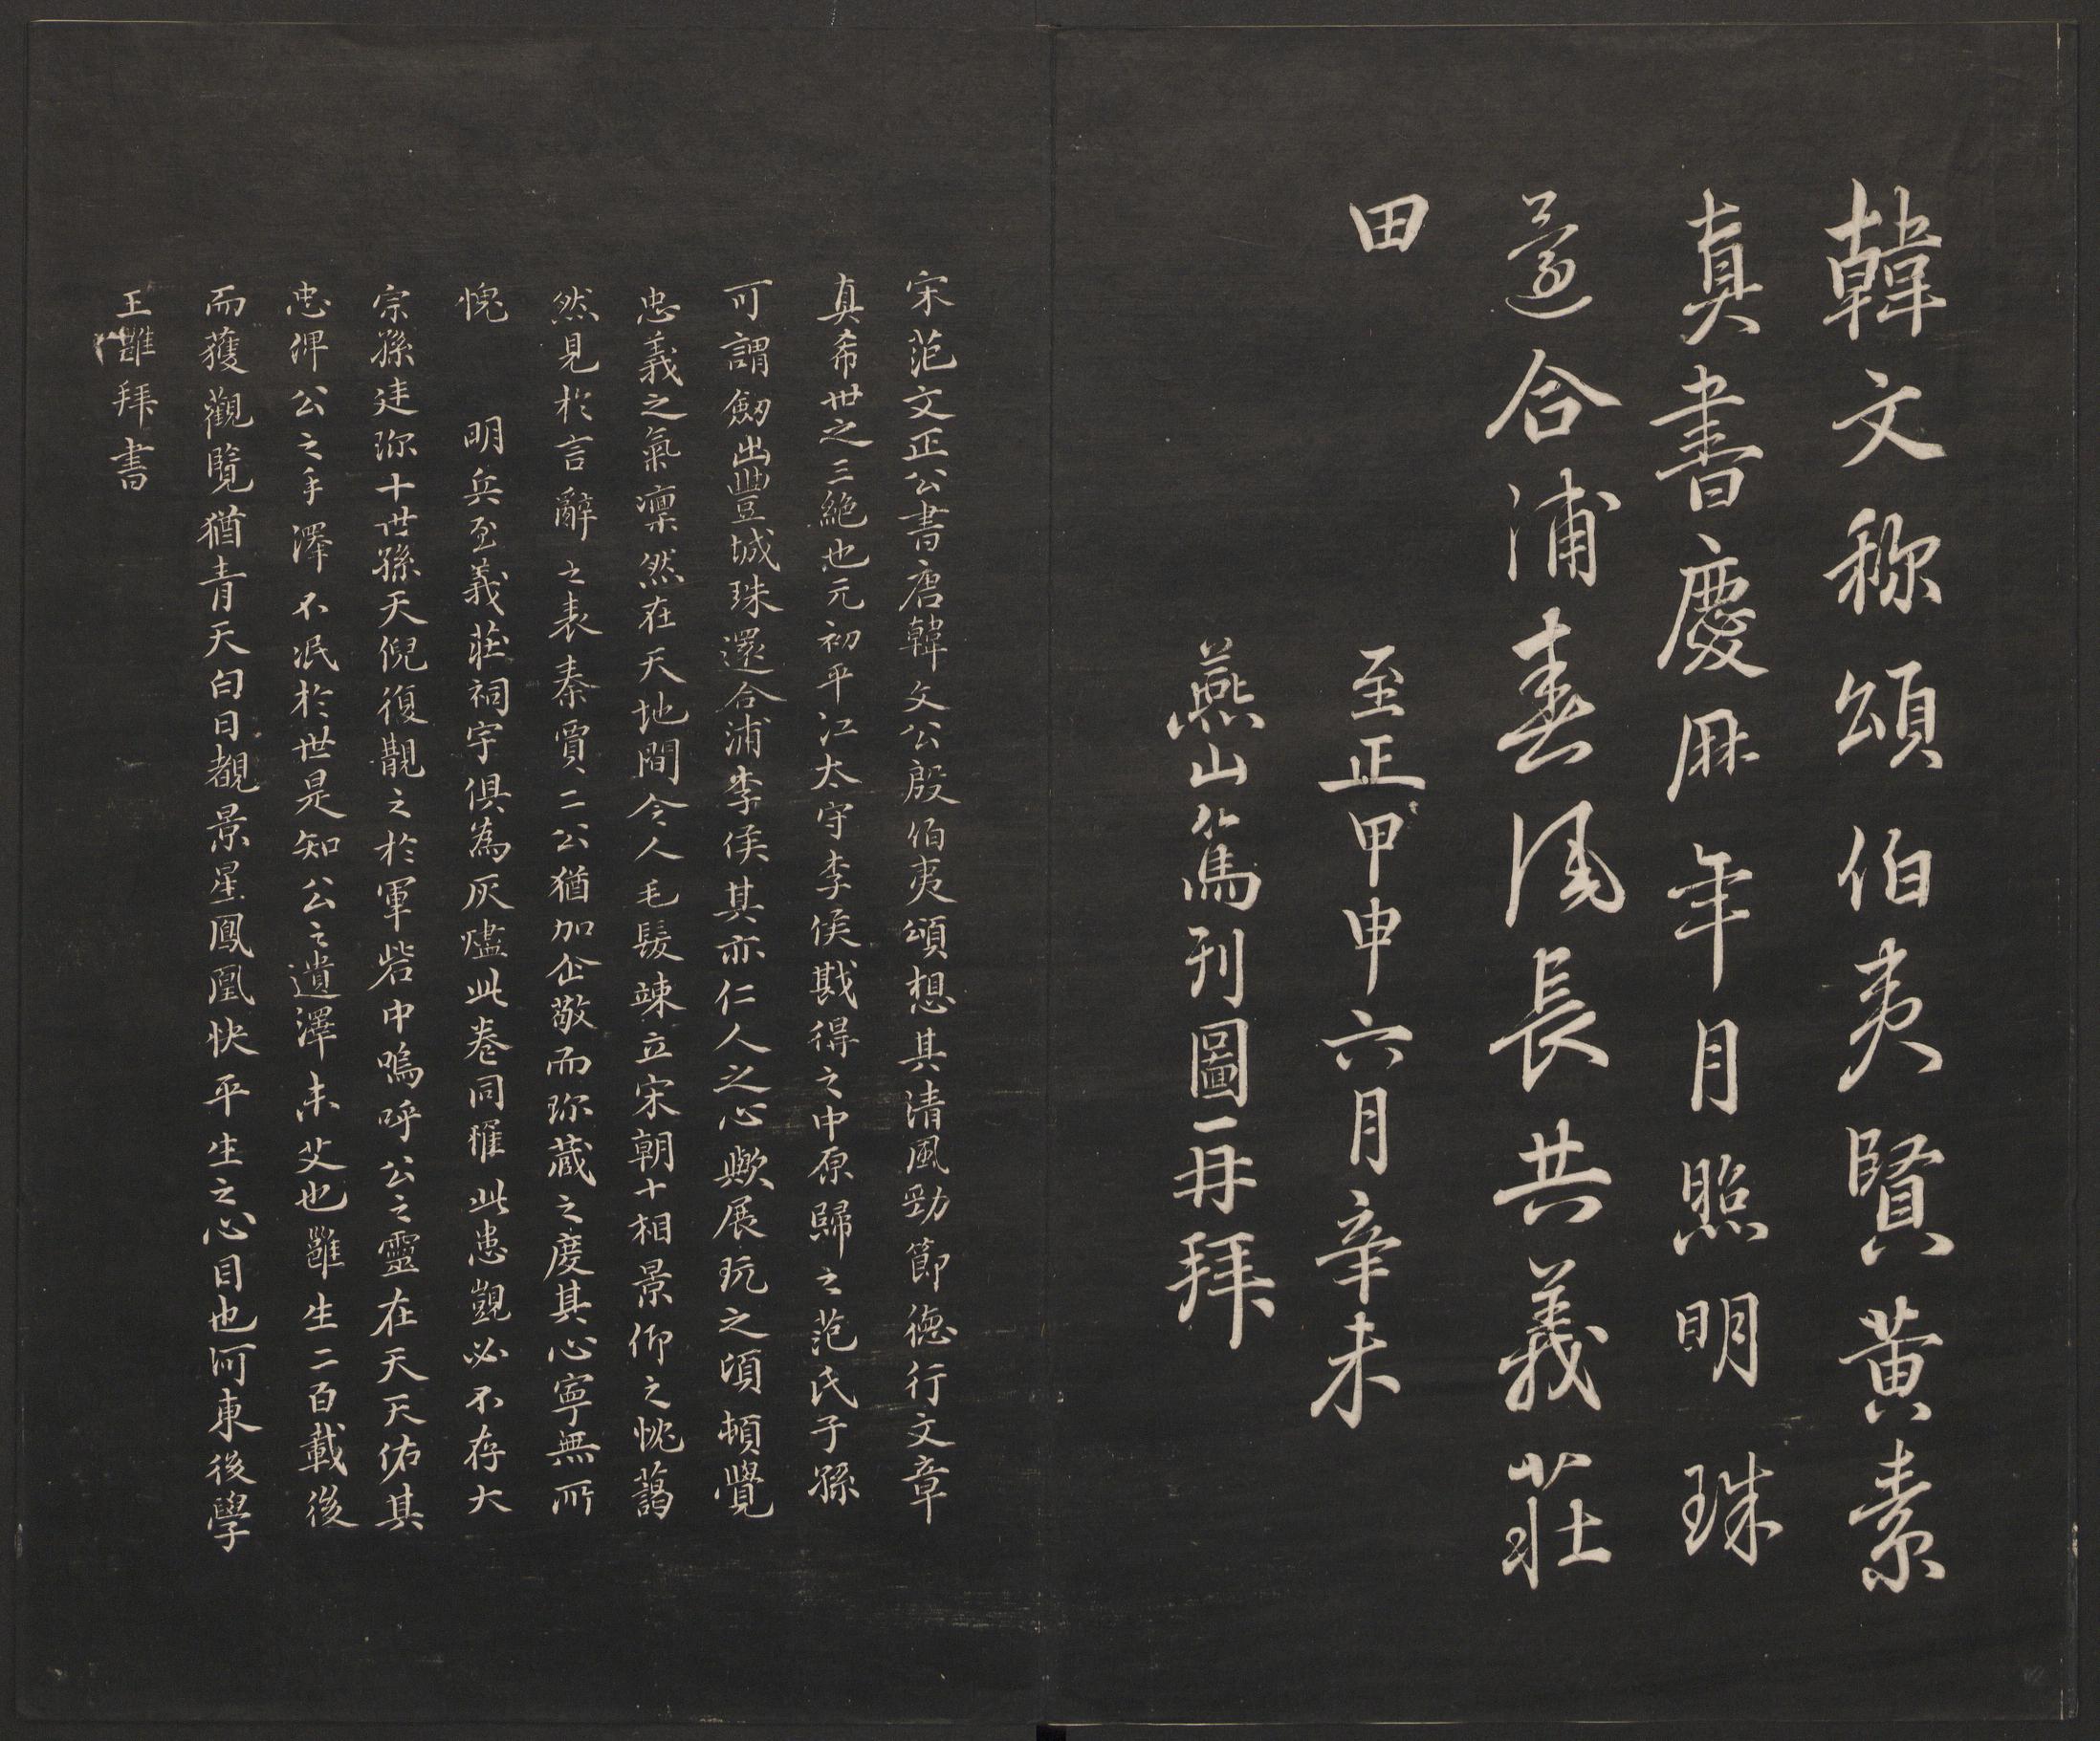 韓文称頌伯夷賢黃素
真書慶厤年月照明珠
還合浦春風長共義莊
田
至正甲申六月辛未
燕山篤列圖再拜
宋范文正公書唐韓文公殷伯夷頌想其清風勁節德行文章
真希世之三絶也元初平江太守李侯戡得之中原歸之范氏子孫
可謂劒出豐城珠還合浦李侯其亦仁人之心歟展玩之頃頓覺
忠義之氣凛然在天地間令人毛髮竦立宋朝十相景仰之忱藹
然見於言辭之表秦賈二公猶加企敬而珎蔵之度其心寧無所
愧　明兵至義莊祠宇俱為灰燼此卷同罹此患覬必不存大
宗孫廷珎十世孫天倪復覯之於軍砦中嗚呼公之靈在天天佑其
忠俾公之手澤不泯於世是知公之遺澤未艾也雝生二百載後
而獲觀覽猶青天白日覩景星鳳凰快平生之心目也河東後學
王雝拜書